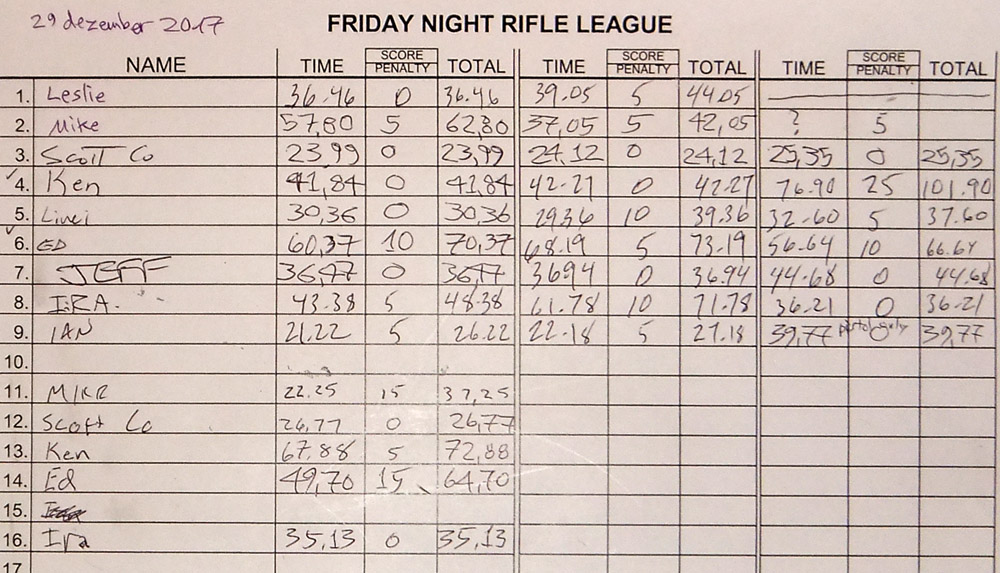 29 dezember 2017
FRIDAY NIGHT RIFLE LEAGUE
NAME TIME SCORE PENALTY TOTAL TIME SCORE PENALTY TOTAL TIME SCORE PENALTY TOTAL
1. Leslie 36.46 0 36.46 39.05 5 44.05
2. Mike 57,80 5 62,80 37,05 5 42,05 ? 5
3. Scott Co 23,99 0 23,99 24,12 0 24,12 25,35 0 25,35
✓4. Ken 41,84 0 41,84 42.27 0 42.27 76.90 25 101.90
5. 30,36 0 30,36 29.36 10 39.36 32.60 5 37.60
✓6. ED 60,37 10 70,37 68.19 5 73.19 56.64 10 66.64
7. JEFF 36,77 0 36,77 36.94 0 36.94 44.68 0 44.68
8. IRA. 43.38 5 48.38 61.78 10 71.78 36.21 0 36.21
9. IAN 21.22 5 26.22 22.18 5 27.18 39,77 pistol only 0 39,77
10.
11. MIKE 22.25 15 37,25
12. Scott Co 26,77 0 26,77
13. Ken 67.88 5 72,88
14. Ed 49,70 15 64,70
15.
16. Ira 35,13 0 35,13
17.